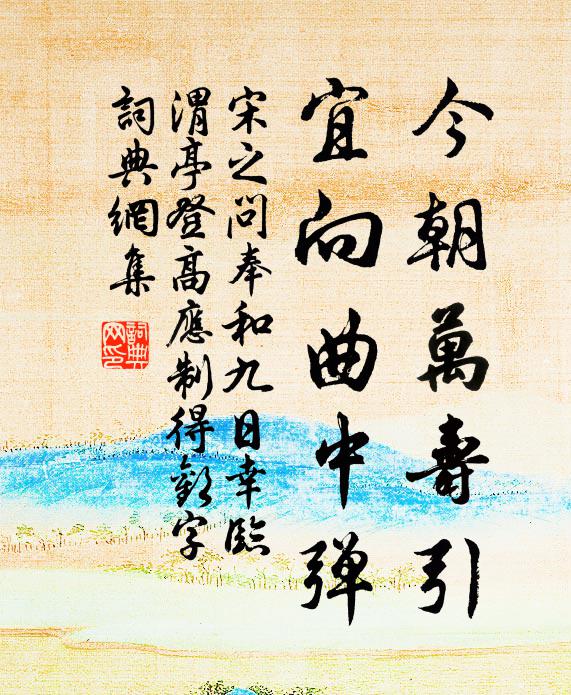 今朝萬壽引
宜向曲中彈
宋之問奉和九日幸臨
渭亭登高應制得歡字
詞典網集
詞典
网印